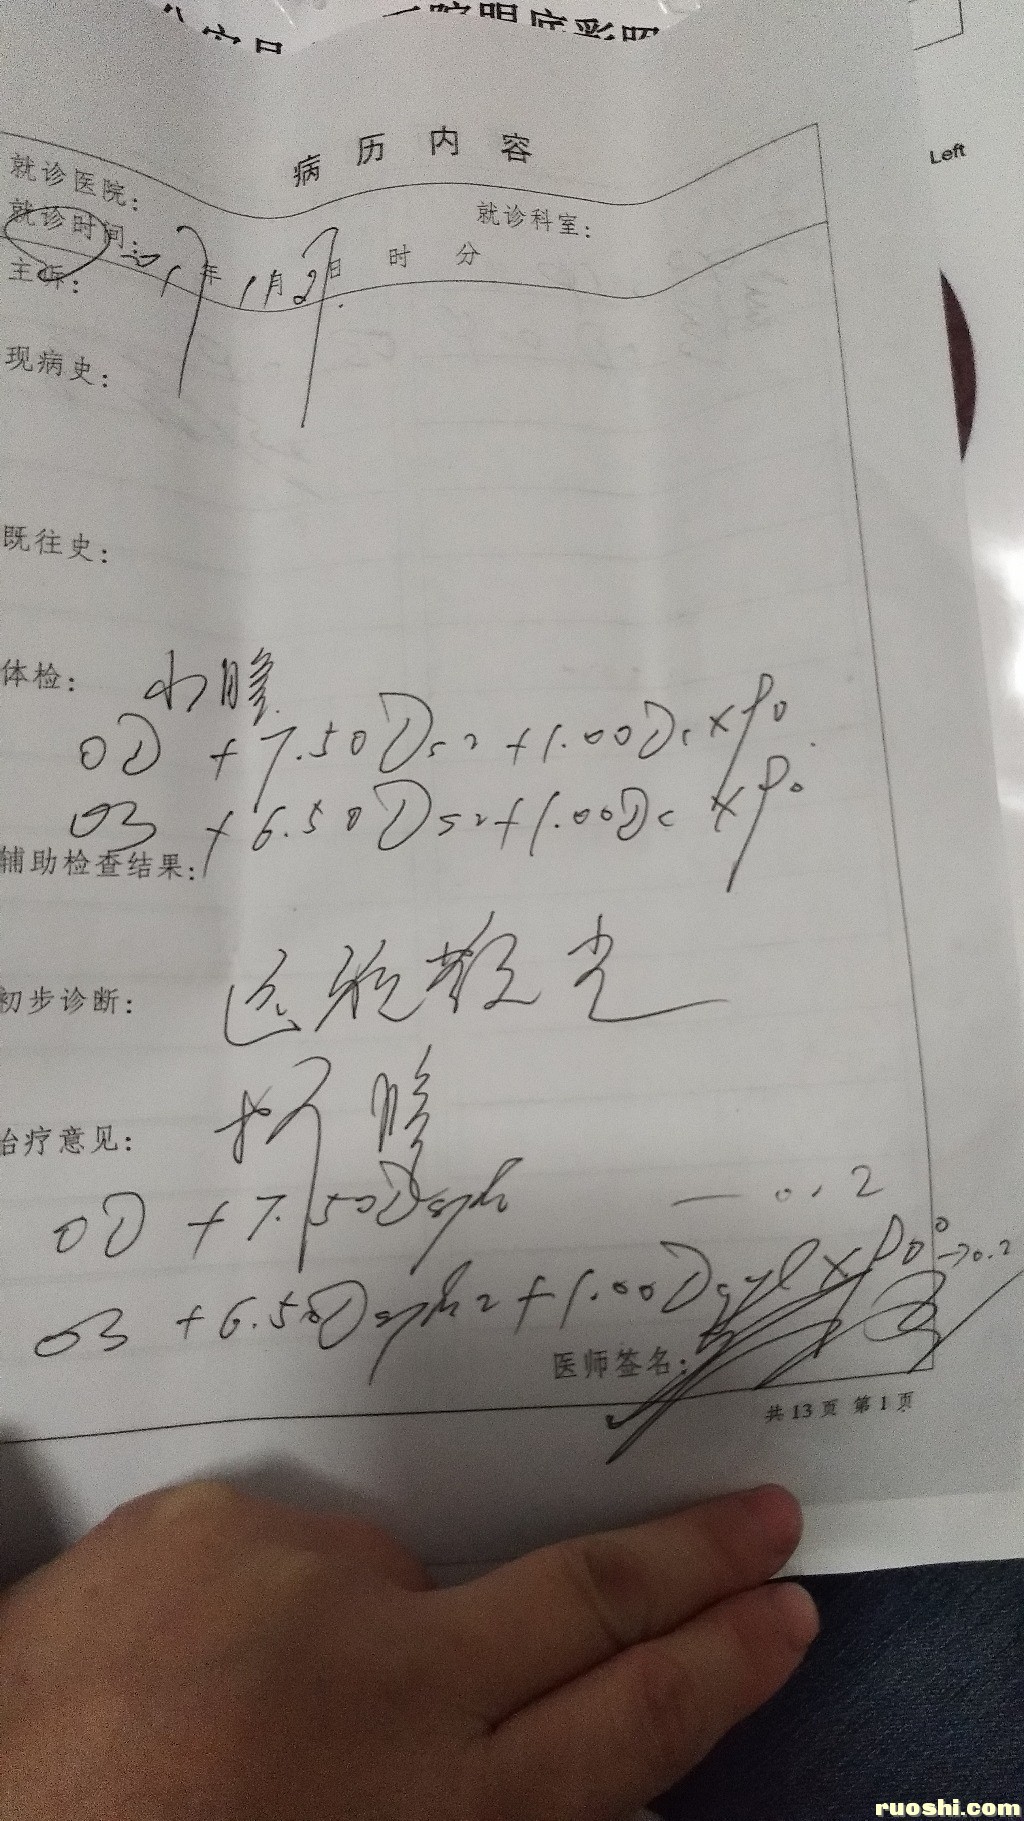 院眼底彩照
Left
病历内容
就诊医院：
就诊科室：
就诊时间： 年 1月29日 时 分
主诉：
现病史：
既往史：
体检： 小瞳
OD +7.50Ds +1.00Dc×90
OS +6.50Ds +1.00Dc×90
辅助检查结果：
初步诊断： 远视散光
治疗意见：
OD +7.50Dsph — 0.2
OS +6.50Dsph +1.00Dcyl×90° →0.2
医师签名：
共13页 第1页
ruoshi.com